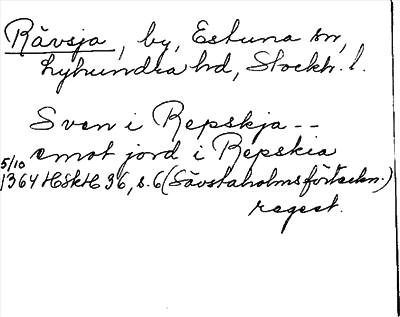 Rävsja, by, Estuna sn,
Lyhundra hd, Stockh. l.
Sven i Repskja --
emot jord i Repskia
5/10
1364 HSkH 36, s. 6 (Sävstaholmsförteckn.)
regest.